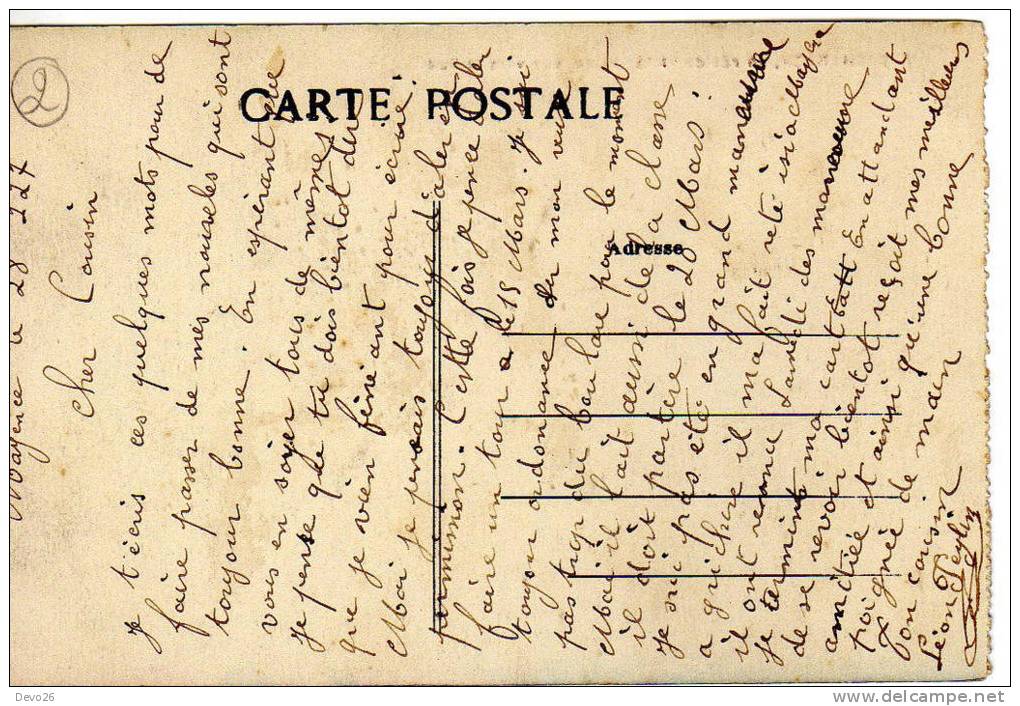 CARTE POSTALE
Adresse
2
Mayence le 28 2 27
Cher Cousin
Je t'écris ces quelques mots pour de
faire passer de mes nouseles qui sont
toujour bonne. En espérant que
vous en soyer tous de mêmes
Je pense que tu dois bientot dir
que je vien féniant pour écrire.
Moi je pensais toujours d'aler en
permission. Cette fois je pence aler
faire un tour le 15 Mars. Je sui
toujour ordonance du mon veux
pas trop du boulane pour le momant
Mai il lait aussi de la clase
il doit partire le 20 Mars.
Je sui pas été en grand manoeuvre
a guichere il ma fait reté isi a Mayence
il ont rerand Lundi des manoeuvre
Je termine ma cart En attandant
de se revoir bientot reçoit mes meilleurs
amitiée et ainsi qu'une bonne
poignée de main
Ton cousin
Léon Peylin
Devo26